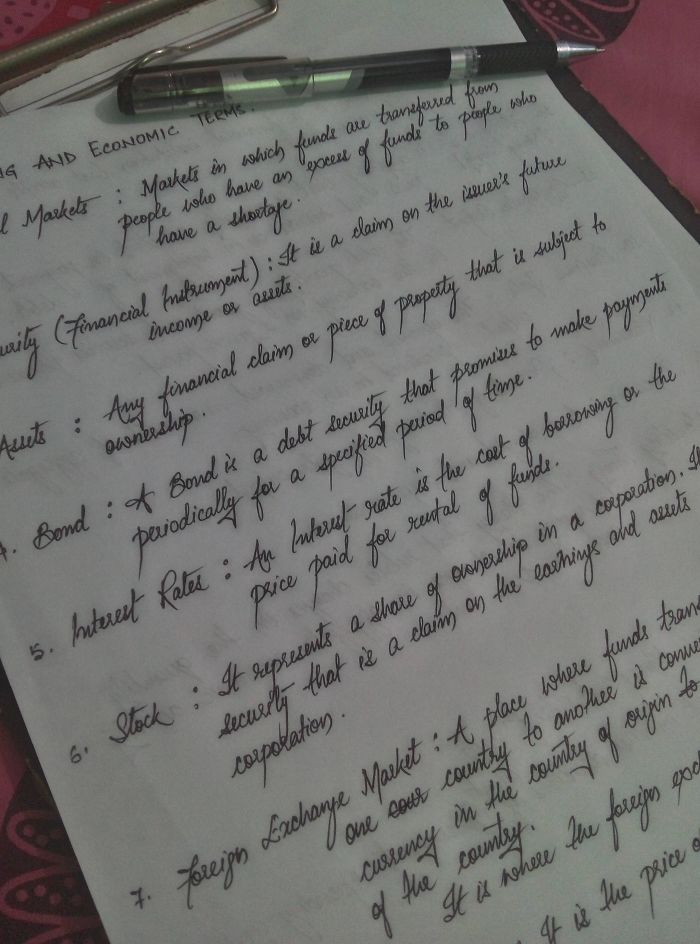 AND ECONOMIC TERMS.
Markets : Markets in which funds are transferred from
people who have an excess of funds to people who
have a shortage.
(Financial Instrument) : It is a claim on the issuer's future
income or assets.
Assets : Any financial claim or piece of property that is subject to
ownership.
Bond : A Bond is a debt security that promises to make payments
periodically for a specified period of time.
5. Interest Rates : An Interest rate is the cost of borrowing or the
price paid for rental of funds.
6. Stock : It represents a share of ownership in a corporation.
security that is a claim on the earnings and assets
corporation.
7. Foreign Exchange Market : A place where funds
one country to another is
currency in the country of origin to
of the country.
It is where the foreign
It is the price